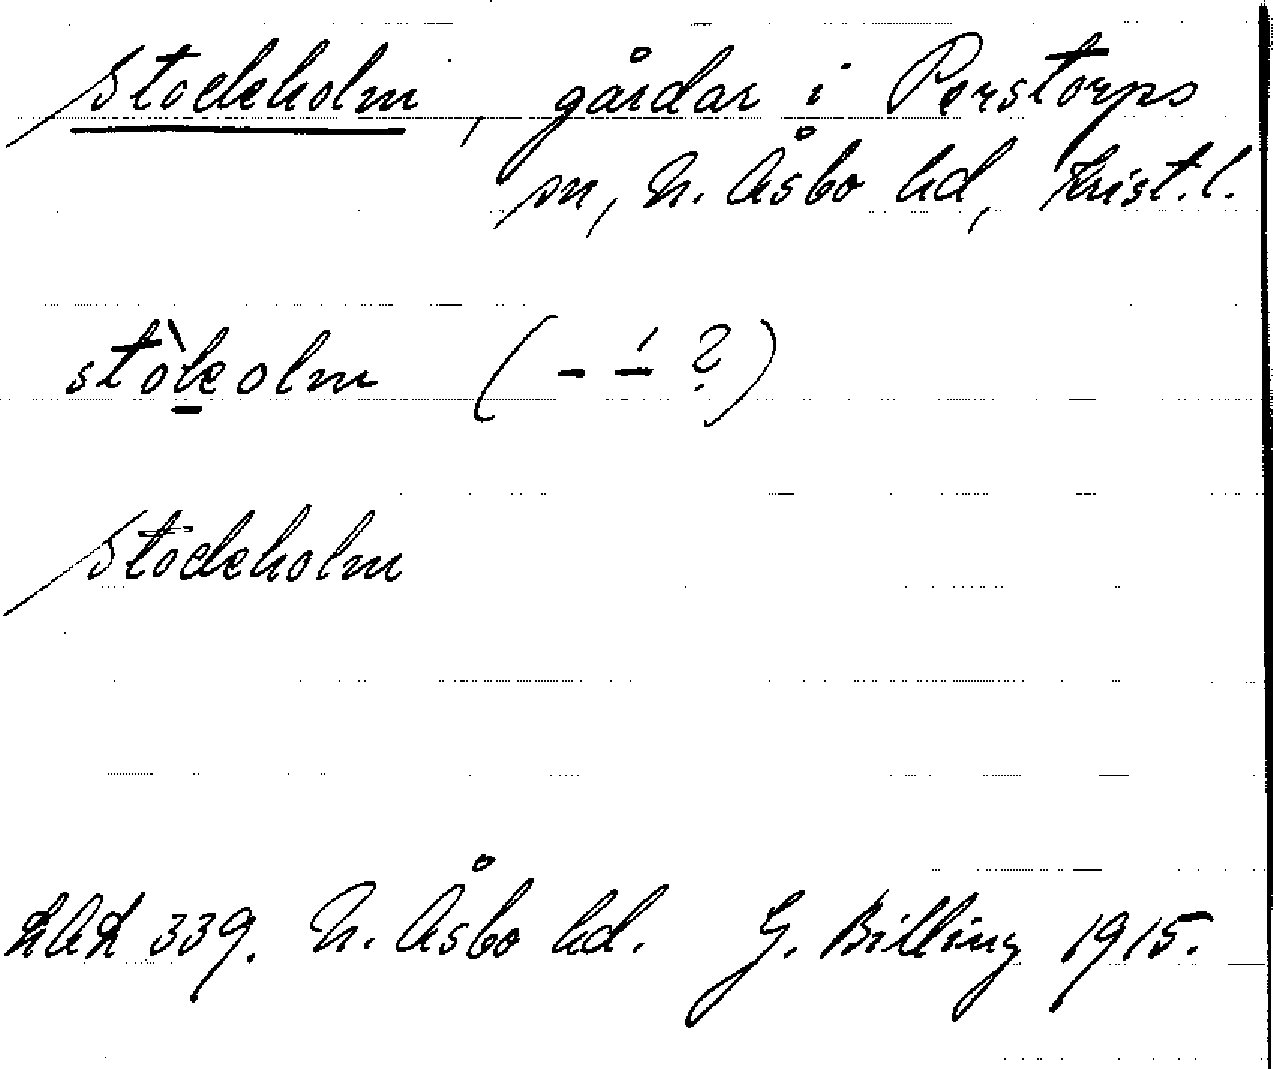 Stockholm, gårdar i Perstorps
sn, N. Åsbo hd, Krist. l.
stòkolm (- -́ ?)
Stockholm
LAL 339. N. Åsbo hd. G. Billing 1915.